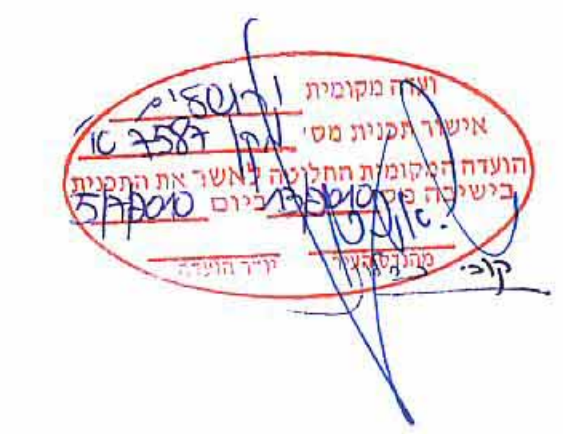 ועדה מקומית ירושלים
אישור תכנית מס' 7587
הועדה המקומית החליטה לאשר את התכנית
בישיבה מס' 17/2010 ביום 5/7/2010
מהנדס העיר יו"ר הועדה
קובי